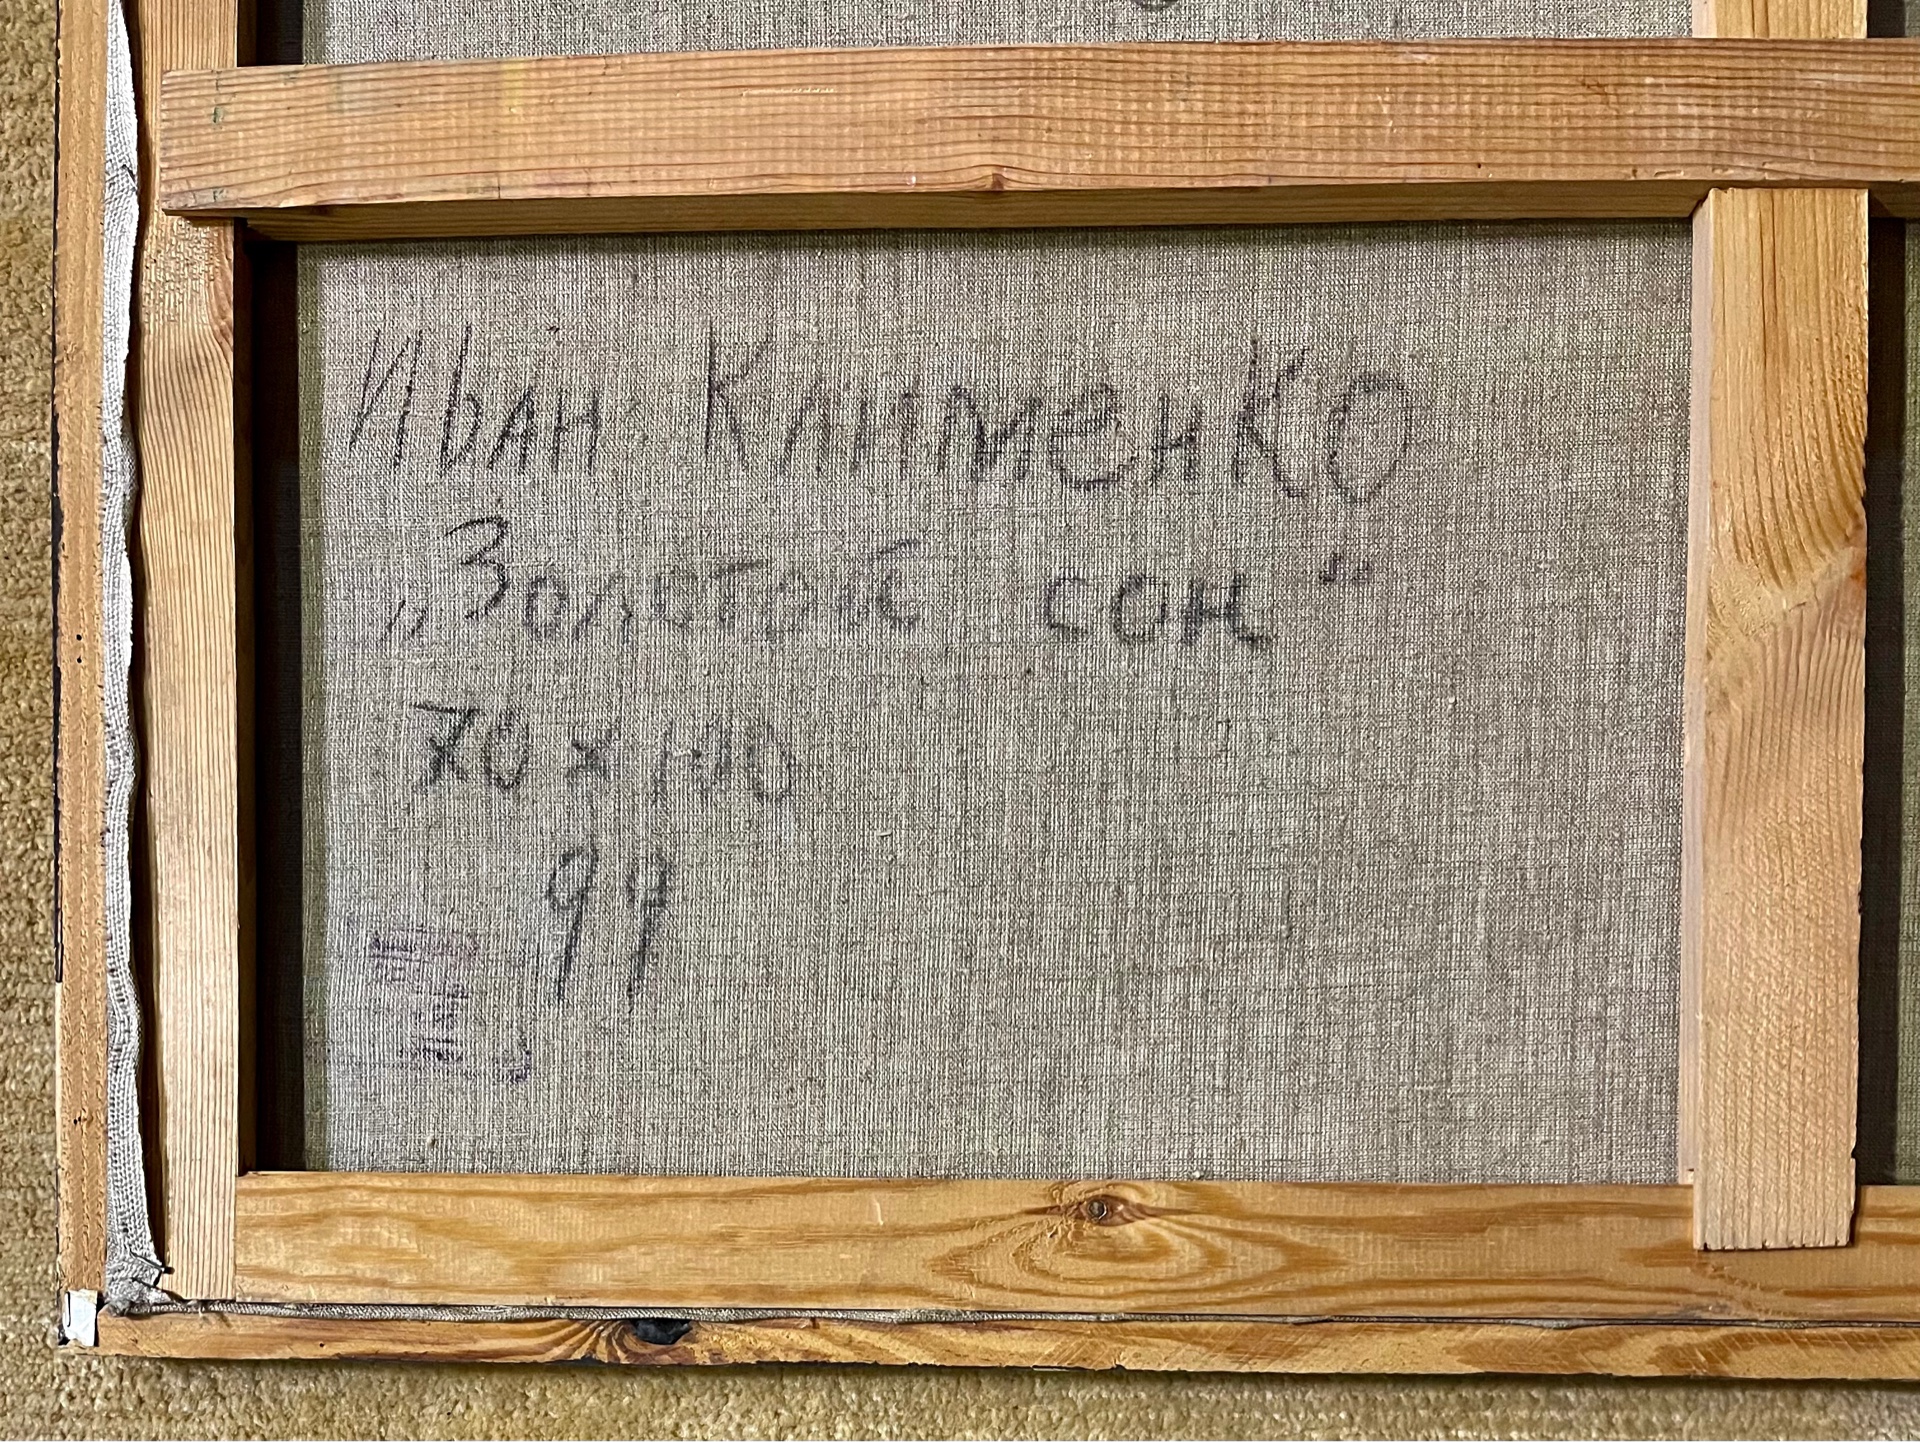 Иван Клименко
„Золотой сон“
70 х 100
99